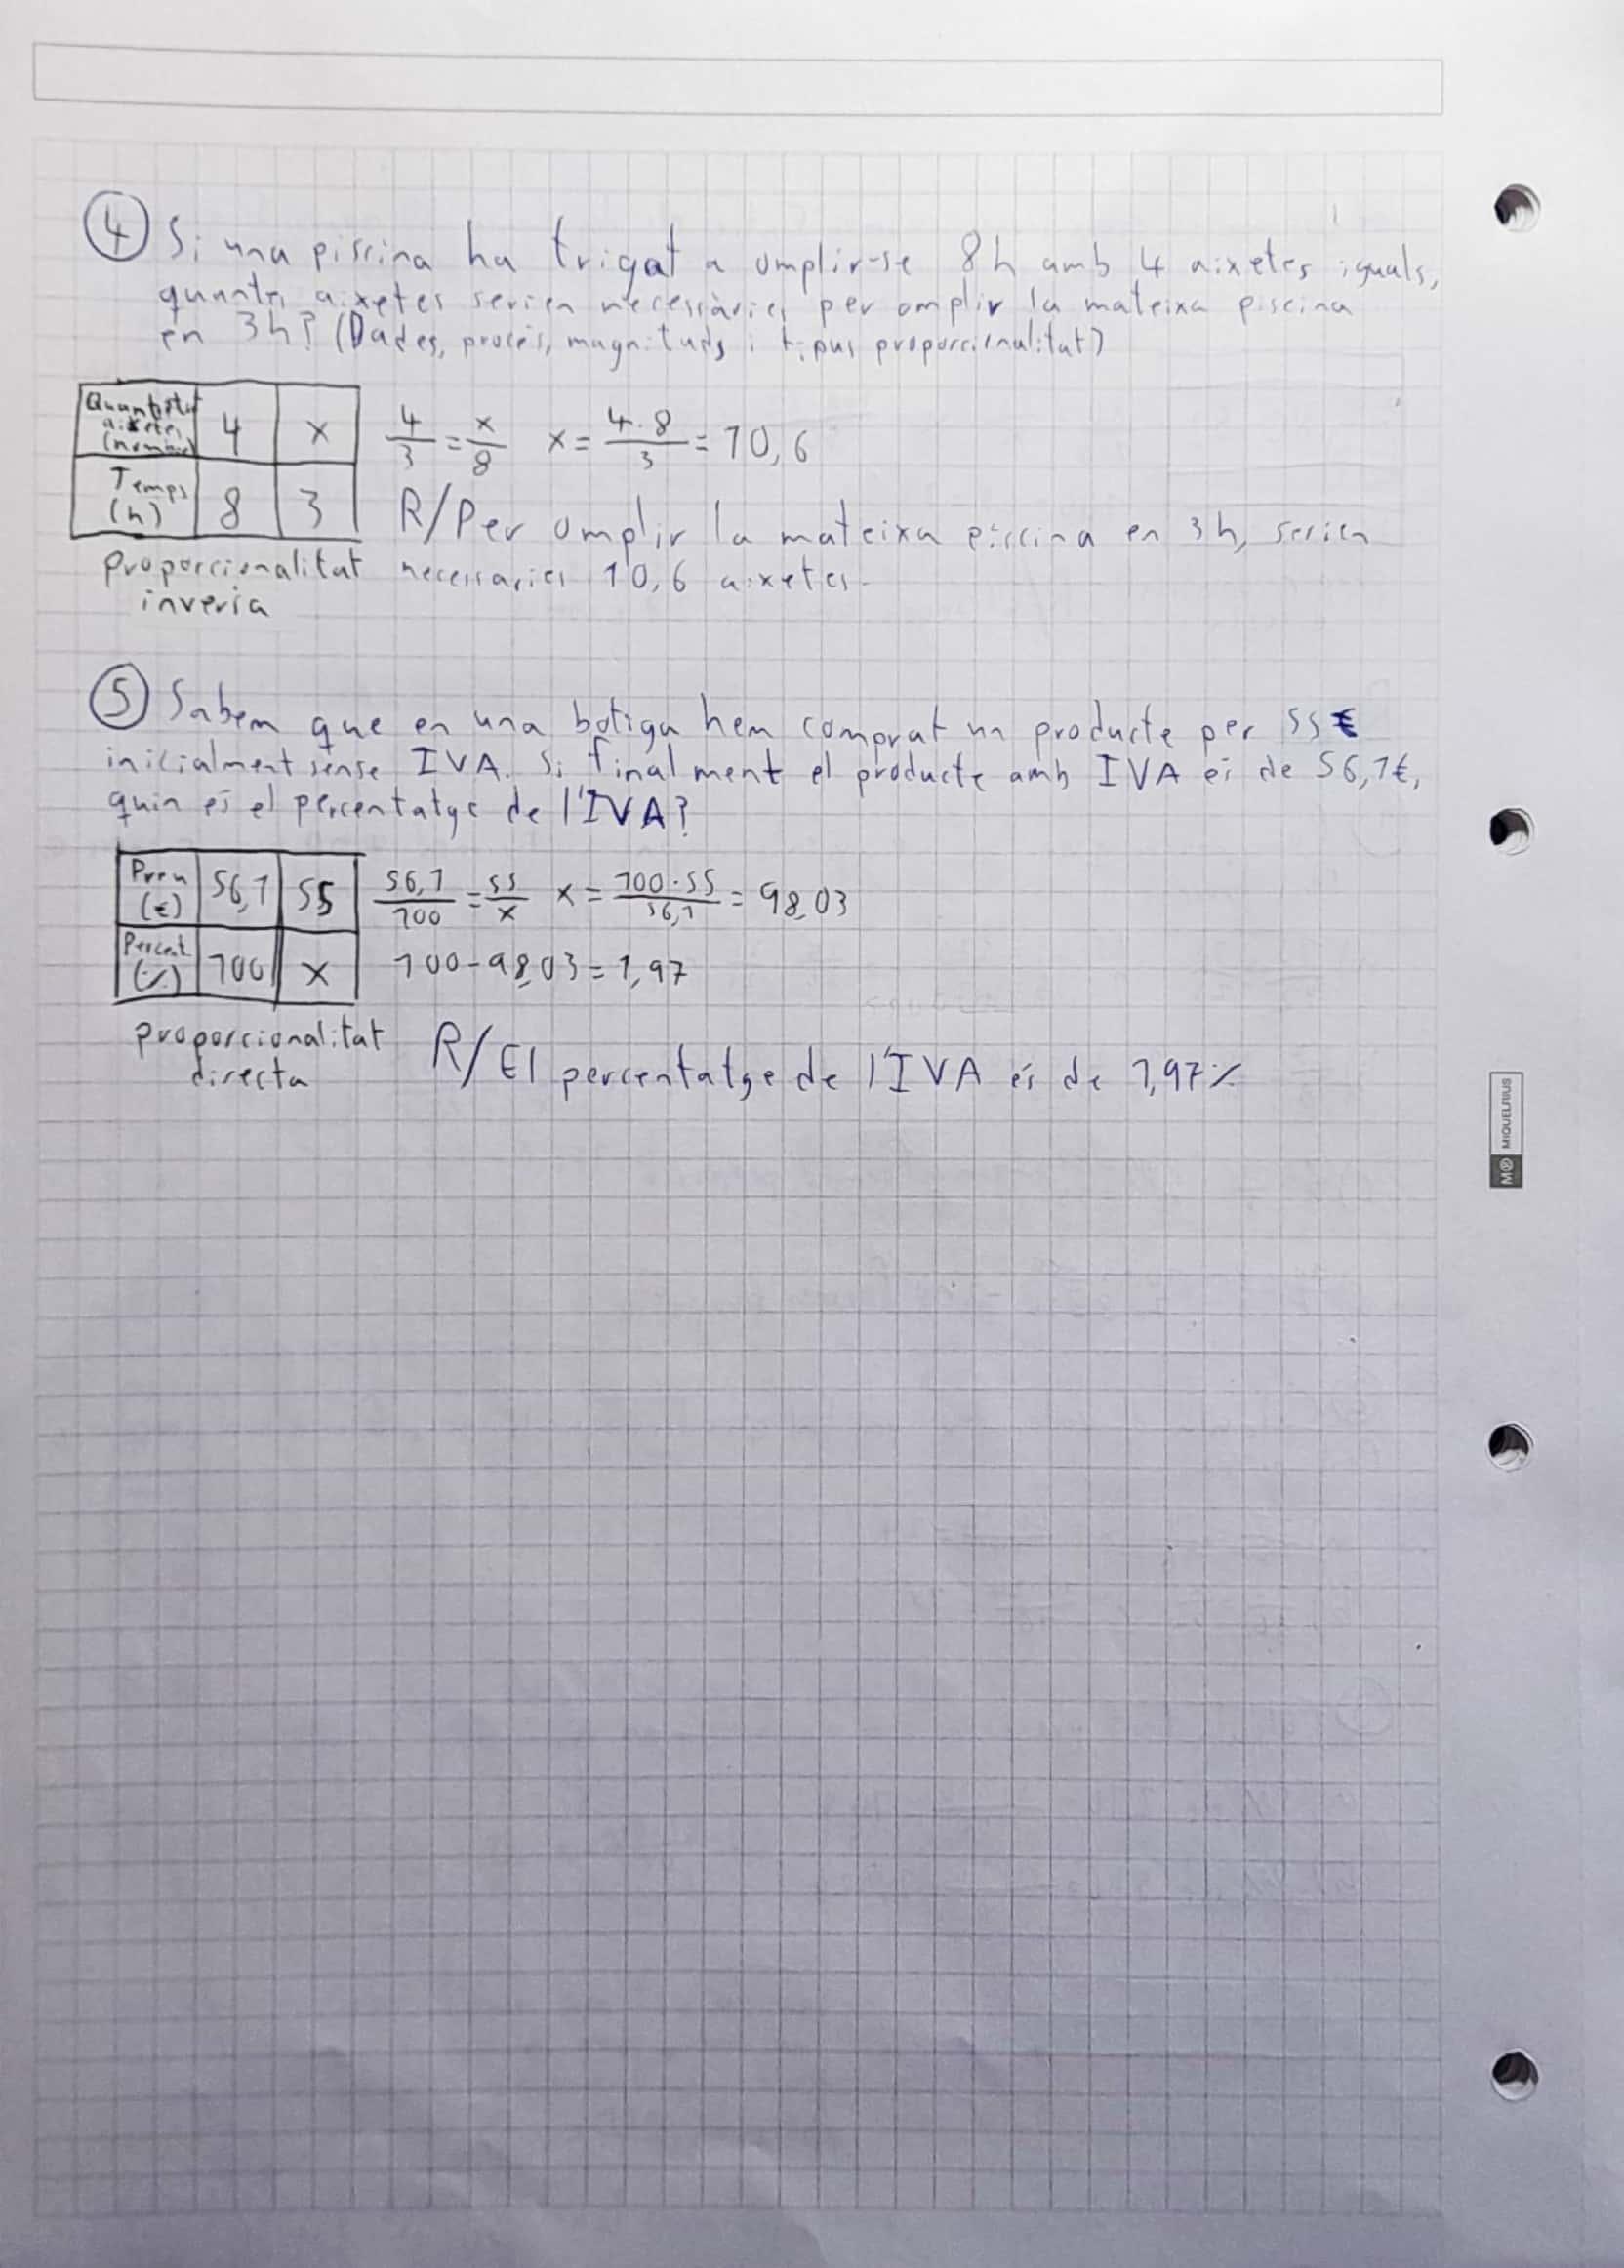 4 Si una piscina ha trigat a omplir-se 8h amb 4 aixetes iguals,
quantes aixetes serien necessàries per omplir la mateixa piscina
en 3h? (Dades, procés, magnituds i tipus proporcionalitat)
Quantitat aixetes (nombre) 4 x
4/3 = x/8 x = 4·8/3 = 10,6
Temps (h) 8 3
R/Per omplir la mateixa piscina en 3h, serien
proporcionalitat necessaries 10,6 aixetes.
inversa
5 Sabem que en una botiga hem comprat un producte per 55€
inicialment sense IVA. Si finalment el producte amb IVA és de 56,1€,
quin és el percentatge de l'IVA?
Preu (€) 56,1 55
56,1/100 = 55/x x = 100·55/56,1 = 98,03
Percent. (%) 100 x
100-98,03=1,97
proporcionalitat
directa
R/El percentatge de l'IVA és de 1,97%
MIQUELRIUS